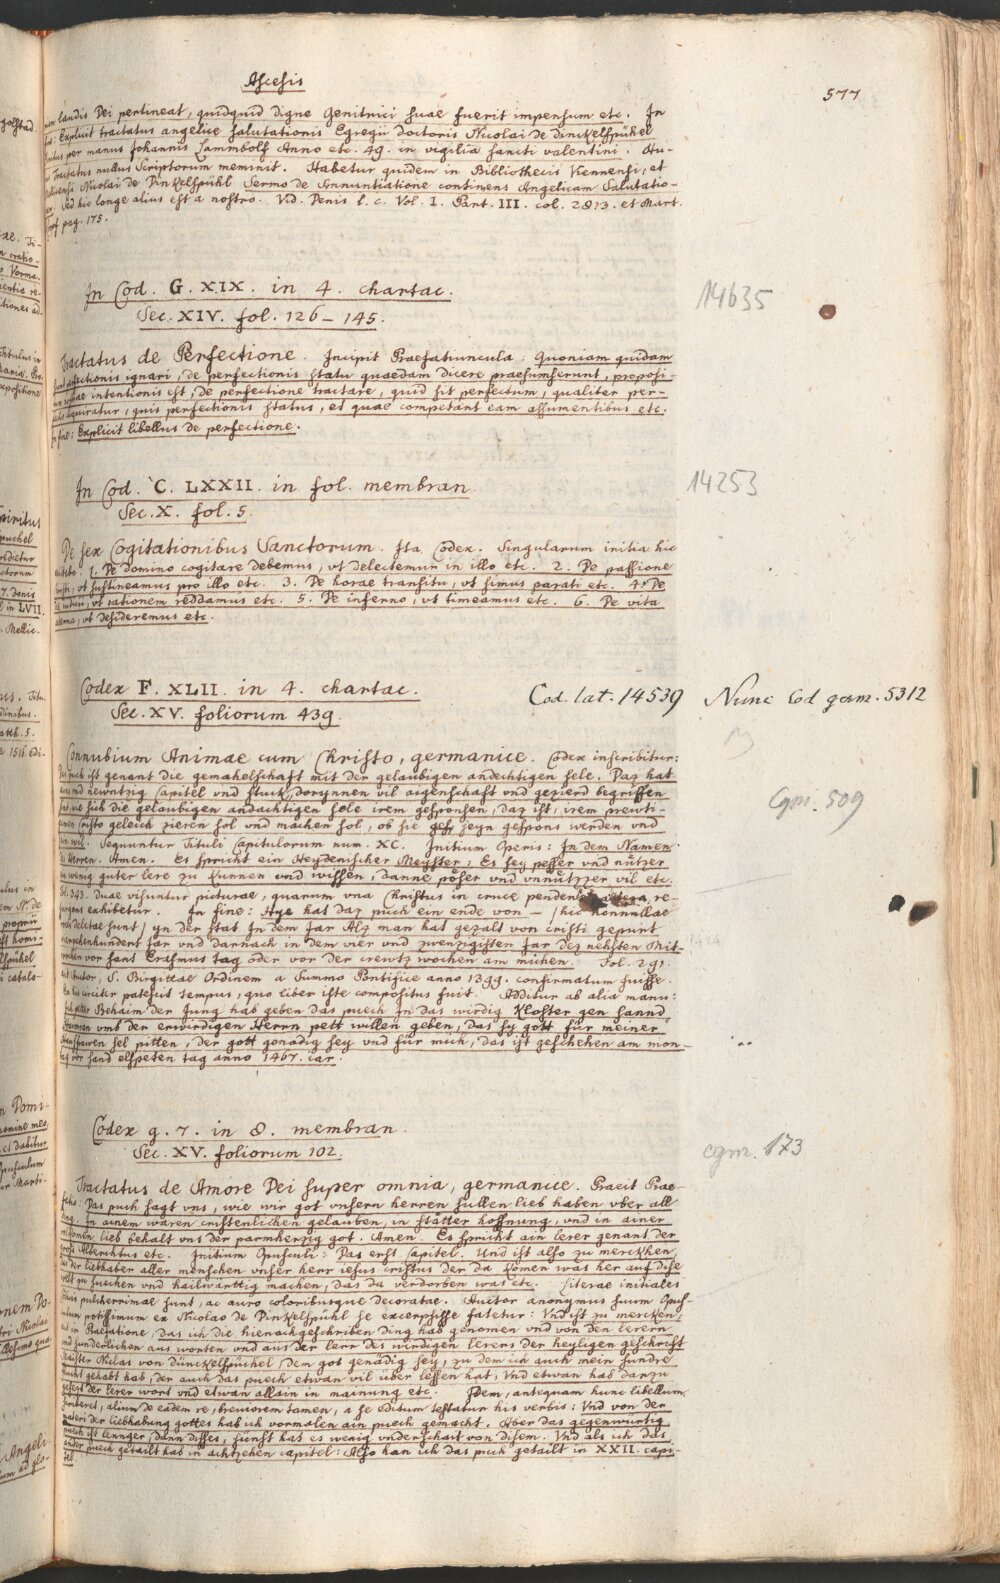 Ascesis
577
laudis Dei pertineat, quidquid digne Genitrici suae fuerit impensum etc. In
Explicit tractatus angelice salutationis Egregii doctoris Nicolai de Dinckelspühel
per manus Johannis Lammbolf Anno etc. 49. in vigilia sancti valentini. Hu-
Tractatus nullus Scriptorum meminit. Habetur quidem in Bibliothecis Viennensi, et
Nicolai de Dinkelspühl Sermo de Annuntiatione continens Angelicam Salutatio-
Sed hic longe alius est a nostro. Vid. Denis l. c. Vol. I. Part. III. col. 2813. et Mart.
pag. 175.
In Cod. G. XIX. in 4. chartac.
14635
Sec. XIV. fol. 126–145.
Tractatus de Perfectione. Incipit Praefatiuncula: Quoniam quidam
perfectionis ignari, de perfectionis statu quaedam dicere praesumserunt, proposi-
intentionis est, de perfectione tractare, quid sit perfectum, qualiter per-
acquiratur, quis perfectionis status, et quae competant eam assumentibus etc.
In fine: Explicit libellus de perfectione.
In Cod. C. LXXII. in fol. membran
14253
Sec. X. fol. 5.
De sex Cogitationibus Sanctorum. Ita Codex. Singularum initia hic
1. De domino cogitare debemus, ut delectemur in illo etc. 2. De passione
ut sustineamus pro illo etc. 3. De horae transitu, ut simus parati etc. 4. De
ut rationem reddamus etc. 5. De inferno, ut timeamus etc. 6. De vita
ut desideremus etc.
Codex F. XLII. in 4. chartac.
Cod. lat. 14539 Nunc Cod germ. 5312
Sec. XV. foliorum 439.
Connubium Animae cum Christo, germanice. Codex inscribitur:
Das puch ist genant die gemahelschaft mit der gelaubigen andechtigen sele. Daz hat
Cgm. 509
newntzig Capitel vnd stuck, dorynnen vil aigenschaft vnd gezierd begriffen
wie sich die gelaubigen andachtigen sele irem gesponsen, daz ist, irem prewti-
Cristo geleich zieren sol vnd machen sol, ob sie seyn gespons werden vnd
Sequuntur Tituli Capitulorum num. XC. Initium Operis: In dem Namen
Herren. Amen. Es spricht ein Heydenischer Meyster: Es sey pesser vnd nützer
wenig guter lere zu kunnen vnd wissen, danne pöser vnd vnnützer vil etc.
343. duae visuntur picturae, quarum una Christus in cruce pendens, altera, re-
exhibetur. In fine: Hye hat daz puch ein ende von — (hic nonnullae
deletae sunt) yn der stat In dem Jar Alz man hat gezalt von cristi gepurt
Jar vnd darnach in dem vier vnd zwenzigisten Jar dez nehsten Mit-
1424
vor sant Erasmus tag oder vor der crewtz wochen am müchen. Fol. 291.
Autor, S. Birgittae Ordinem a Summo Pontifice anno 1399. confirmatum fuisse.
circiter patescit tempus, quo liber iste compositus fuit. Additur ab alia manu:
Behaim der Jung hab geben das puech In das wirdig Kloster gen sannd
vmb der erwirdigen Herrn pett willen geben, das sy gott für meiner
sel pitten, der gott genadig sey vnd für mich, das ist geschehen am mon-
tag vor sand elspeten tag anno 1467. iar.
Codex g. 7. in 8. membran.
cgm. 173
Sec. XV. foliorum 102.
Tractatus de Amore Dei super omnia, germanice. Praeit Prae-
Das puch sagt vns, wie wir got vnsern herren sullen lieb haben vber all
In ainem waren cristenlichen gelauben, in stätter hoffnung, vnd in ainer
lieb behalt vns der parmherzig got. Amen. Es spricht ain lerer genant der
Alberichtus etc. Initium Opusculi: Das erst Capitel. Und ist also zu merckhen
der liebhaber aller menschen vnser herr iesus cristus der da komen was her auf dise
zu suechen vnd hailwärttig machen, das da verdorben was etc. Literae initiales
pulcherrimae sunt, ac auro coloribusque decoratae. Auctor anonymus suum Opus-
potissimum ex Nicolao de Dinkelspühl se excerpsisse fatetur: Vnd ist zu mercken,
in Praefatione, das ich die hienachgeschriben ding hab genomen vnd von den lerern
sunderlichen aus worten vnd aus der lerr des wirdigen lerers der heyligen geschrift
Maister Niclas von Dünckelspühel, dem got genädig sey, zu dem ich auch mein sundre
gehabt hab, der auch das puech etwan vil vber lessen hat, Vnd etwan hab darzu
gesetzt der lerer wort vnd etwan allain in mainung etc. Idem, antequam hunc libellum
alium de eadem re, breviorem tamen, a se editum testatur his verbis: Vnd von der
der liebhabung gottes hab ich vormalen ain puech gemacht. Aber das gegenwürtig
puech ist lennger, dann disses, sunst hat es wenig vnderschait von disem. Vnd als ich das
puech getailt hab in achtzehen capitel: Also han ich das puch getailt in XXII. capi-
tel.